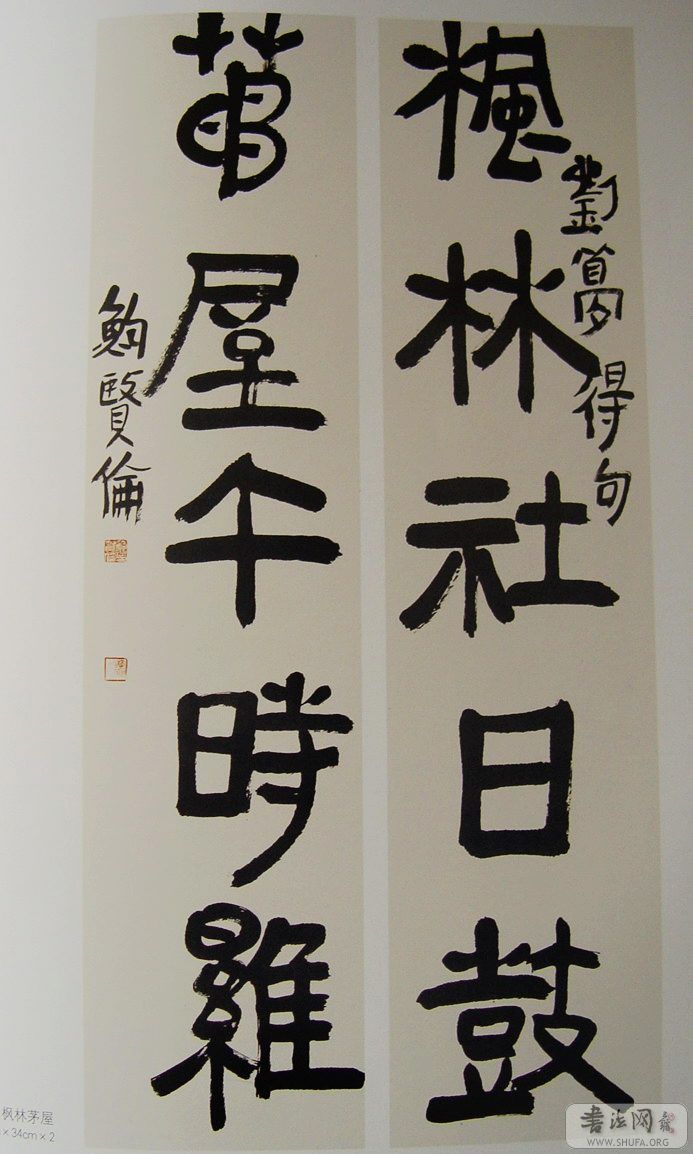 楓林社日鼓
劉夢得句
茅屋午時雞
鮑賢倫
枫林茅屋
×34cm×2
书法网
WWW.SHUFA.ORG